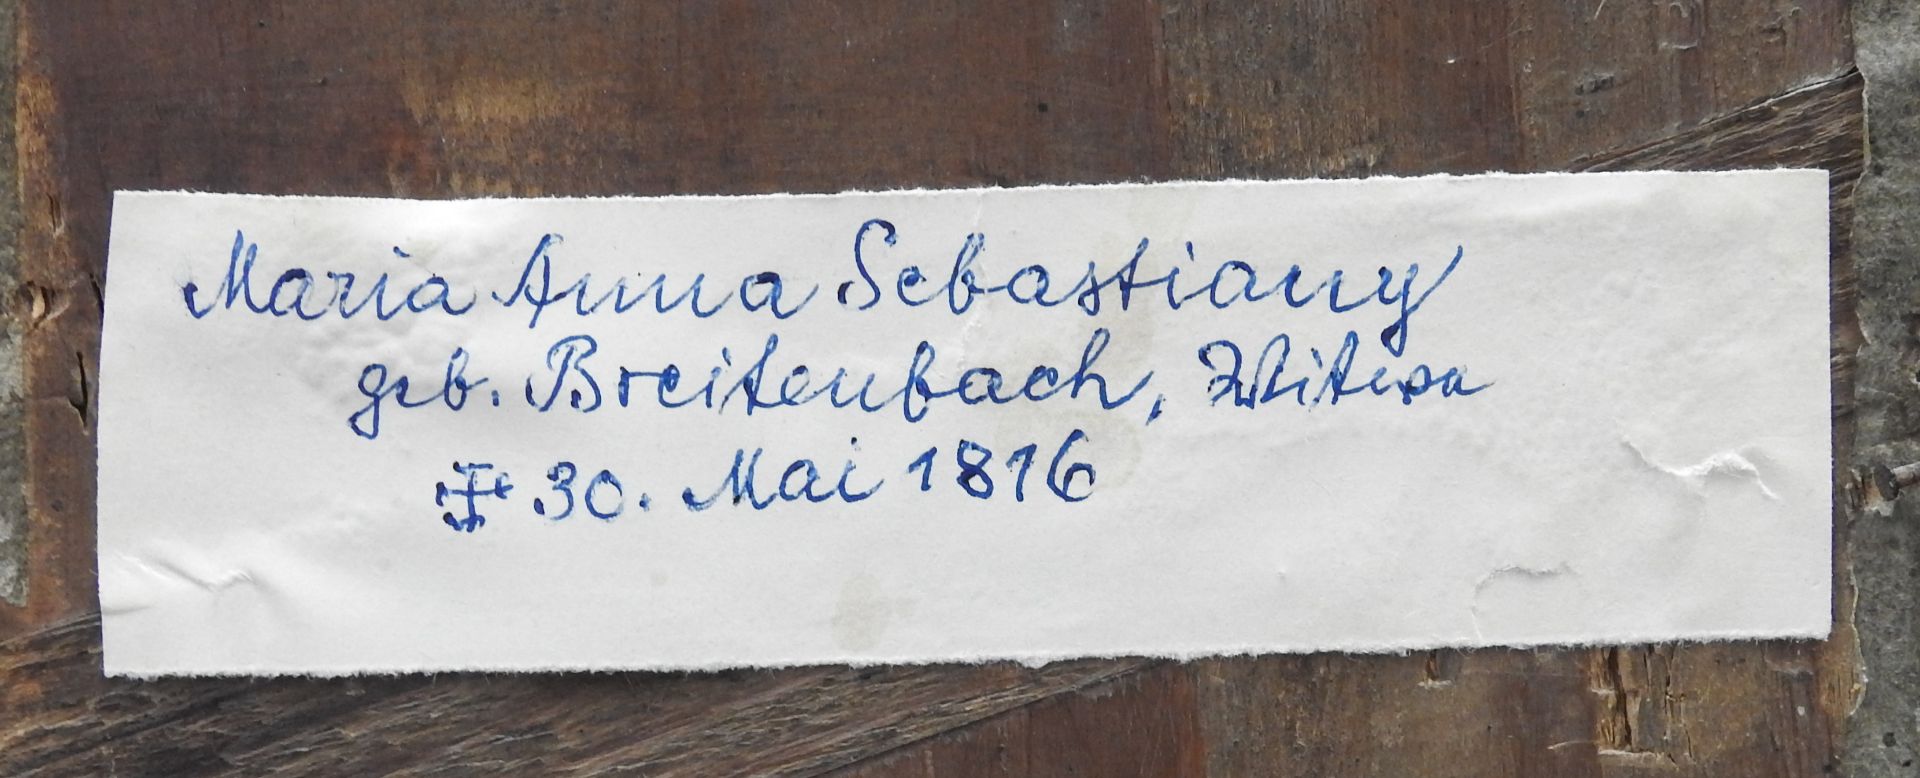 Maria Anna Sebastiany
geb. Breitenbach, Witwe
✝ 30. Mai 1816